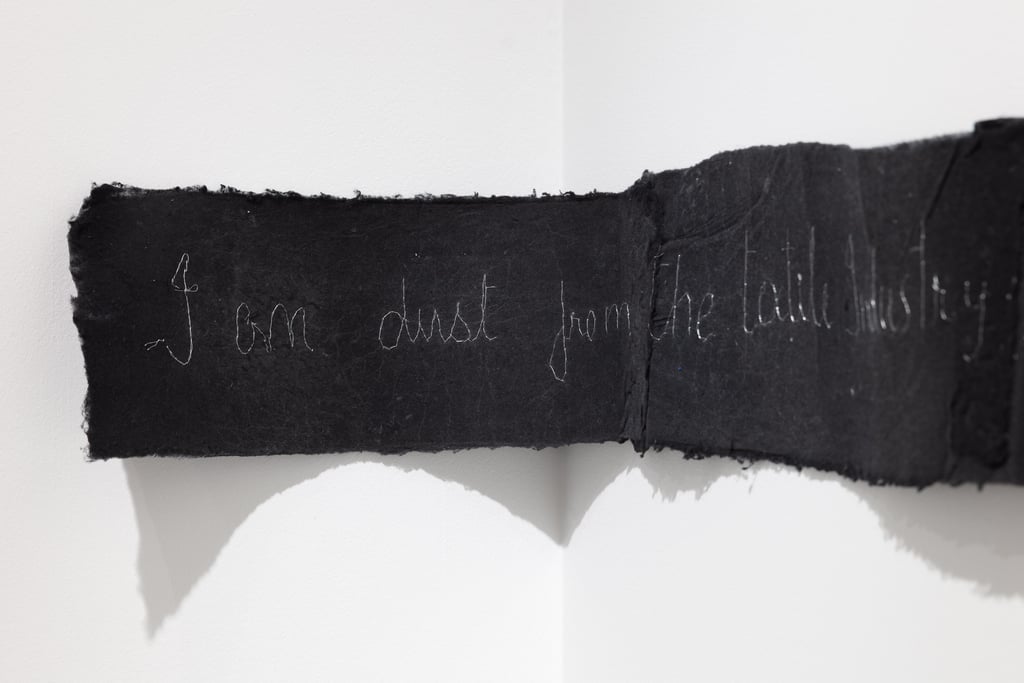 I am dust from the textile industry